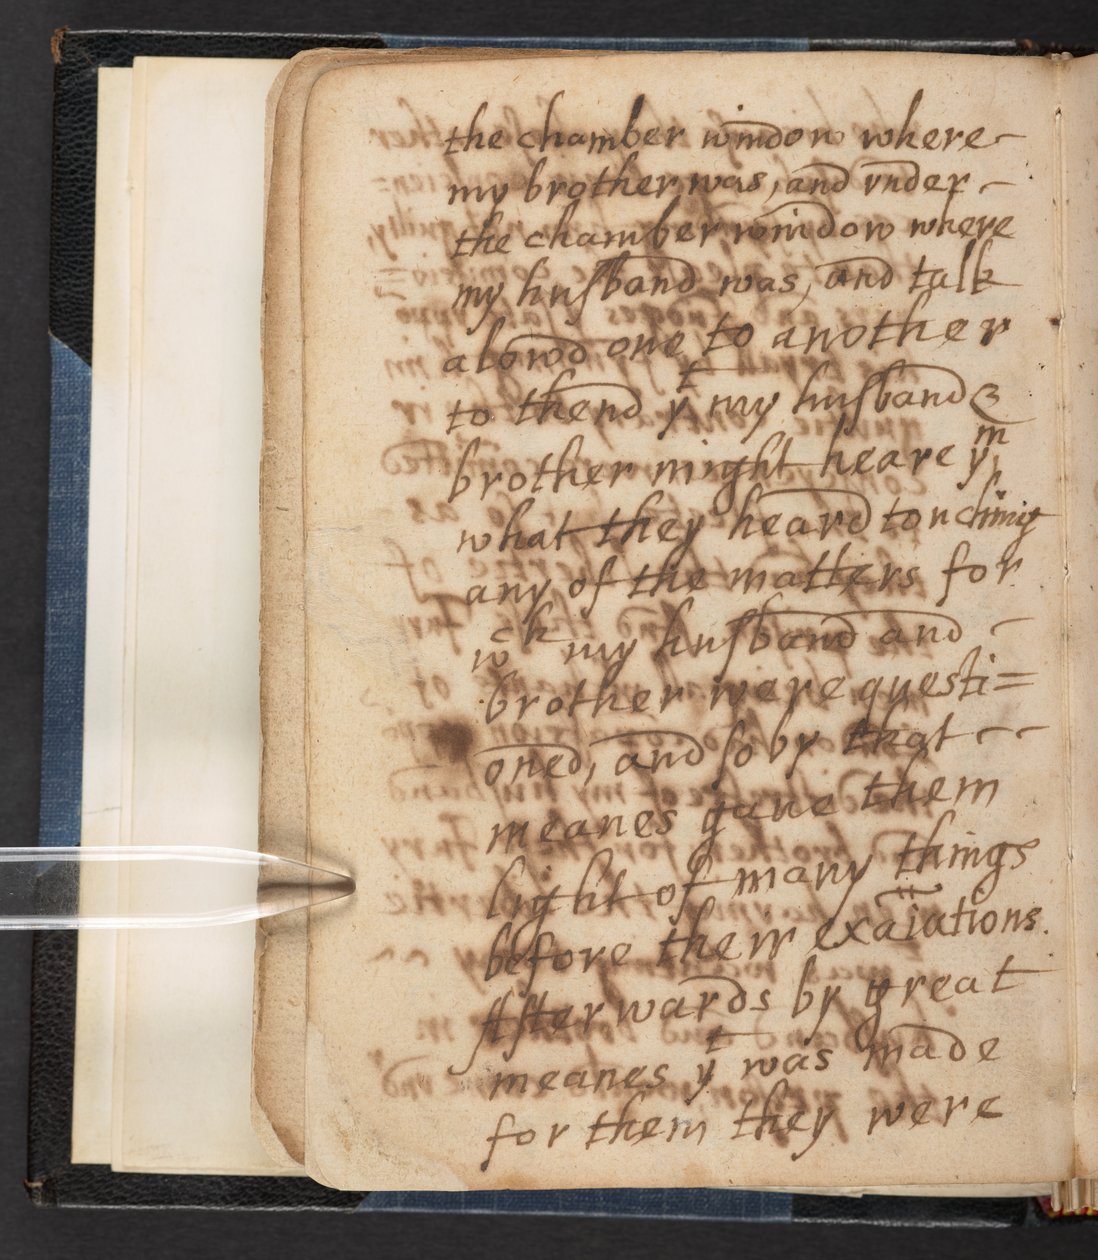 the chamber window where
my brother was, and vnder
the chamber window where
my husband was, and talk
alowd one to another
to thend yt my husband &
brother might heare ym
what they heard touching
any of the matters for
wch my husband and
brother were questi=
oned, and so by that
meanes gaue them
light of many things
before their exaiations.
Afterwards by great
meanes yt was made
for them they were